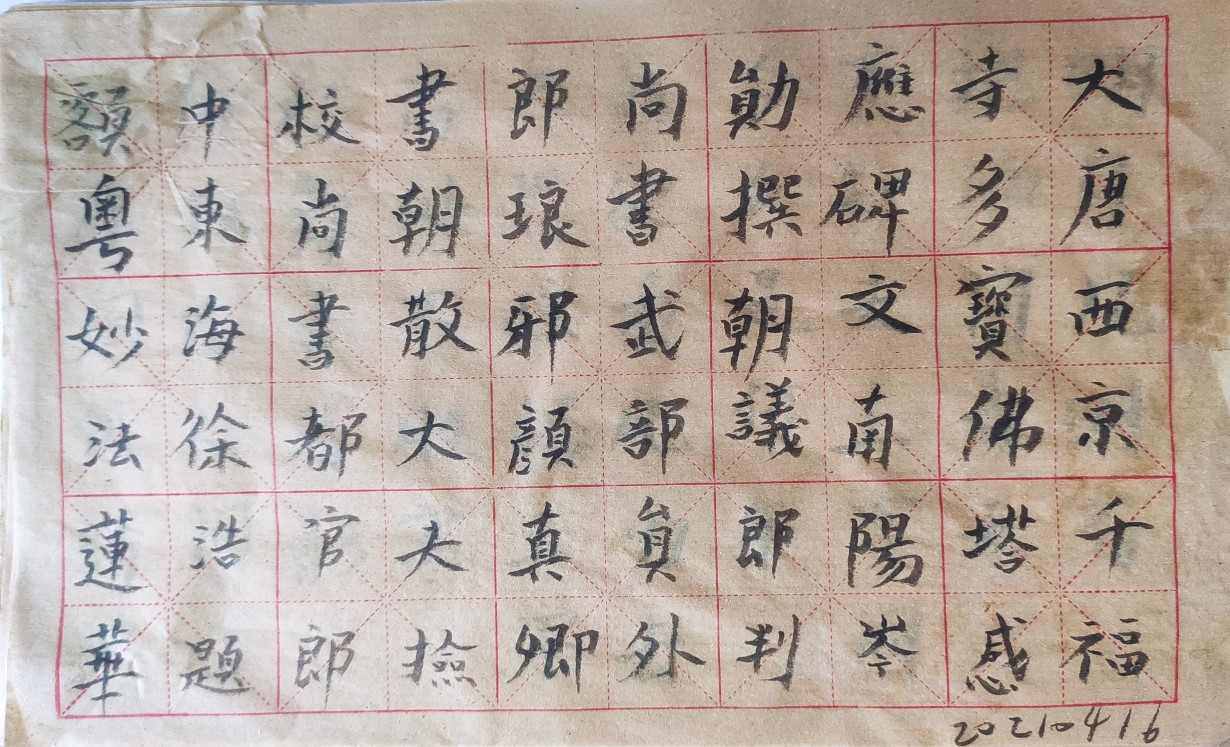 大唐西京千福
寺多寶佛塔感
應碑文南陽岑
勛撰朝議郎判
尚書武部員外
郎琅邪顏真卿
書朝散大夫撿
校尚書都官郎
中東海徐浩題
額粵妙法蓮華
20210416